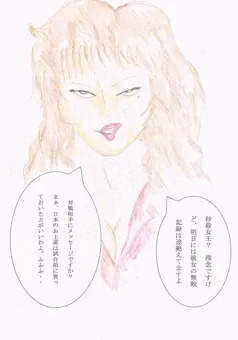 秒殺女王？　残念ですけ
ど、明日には彼女の無敗
記録は途絶えてますよ
対戦相手にメッセージですか？
まぁ、日本のお土産は試合前に買っ
ておいた方がいいわよ。ふふふ・・